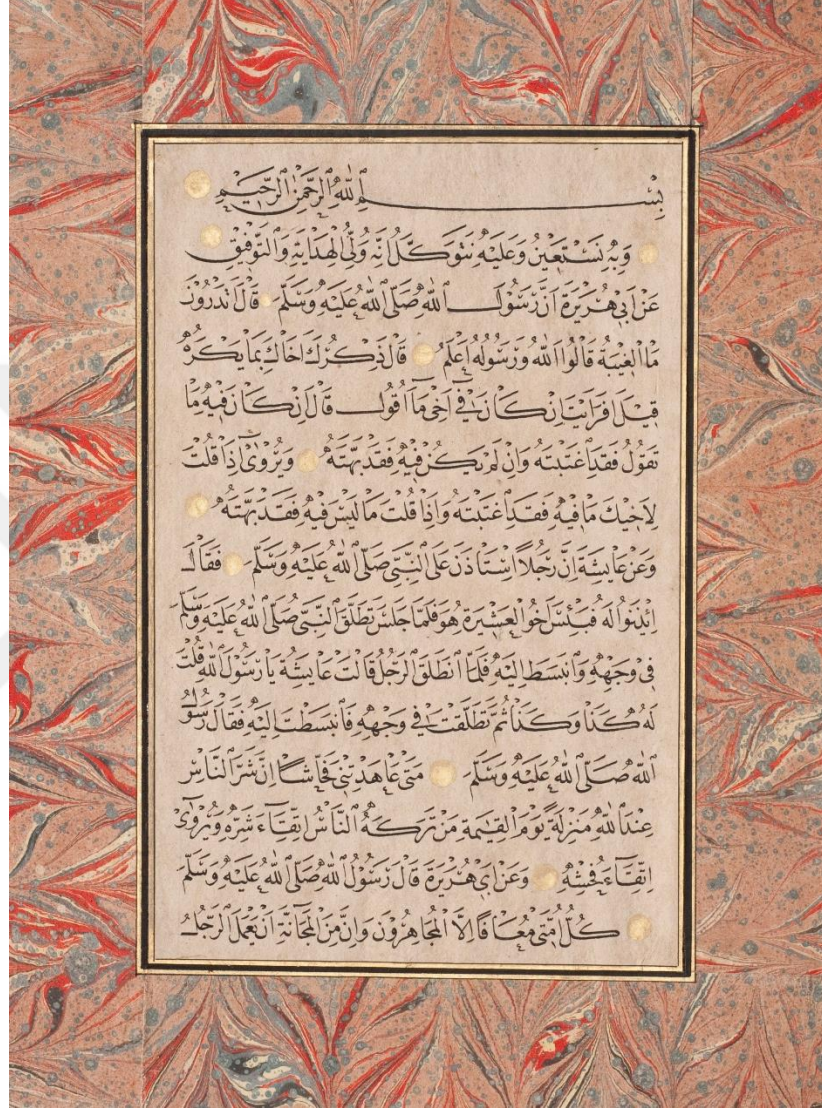 بِسْمِ اللّٰهِ الرَّحْمٰنِ الرَّحِيمِ
وَبِهِ نَسْتَعِينُ وَعَلَيْهِ نَتَوَكَّلُ اِنَّهُ وَلِيُّ الْهِدَايَةِ وَالتَّوْفِيقِ
عَنْ اَبِي هُرَيْرَةَ اَنَّ رَسُولَ اللّٰهِ صَلَّى اللّٰهُ عَلَيْهِ وَسَلَّمَ قَالَ اَتَدْرُونَ
مَا الْغِيبَةُ قَالُوا اَللّٰهُ وَرَسُولُهُ اَعْلَمُ قَالَ ذِكْرُكَ اَخَاكَ بِمَا يَكْرَهُ
قِيلَ اَفَرَاَيْتَ اِنْ كَانَ فِي اَخِي مَا اَقُولُ قَالَ اِنْ كَانَ فِيهِ مَا
تَقُولُ فَقَدِ اغْتَبْتَهُ وَاِنْ لَمْ يَكُنْ فِيهِ فَقَدْ بَهَتَّهُ وَيُرْوٰى اِذَا قُلْتَ
لِاَخِيكَ مَا فِيهِ فَقَدِ اغْتَبْتَهُ وَاِذَا قُلْتَ مَا لَيْسَ فِيهِ فَقَدْ بَهَتَّهُ
وَعَنْ عَايِشَةَ اِنَّ رَجُلًا اسْتَاْذَنَ عَلَى النَّبِيِّ صَلَّى اللّٰهُ عَلَيْهِ وَسَلَّمَ فَقَالَ
اِئْذَنُوا لَهُ فَبِئْسَ اَخُو الْعَشِيرَةِ هُوَ فَلَمَّا جَلَسَ تَطَلَّقَ النَّبِيُّ صَلَّى اللّٰهُ عَلَيْهِ وَسَلَّمَ
فِي وَجْهِهِ وَانْبَسَطَ اِلَيْهِ فَلَمَّا انْطَلَقَ الرَّجُلُ قَالَتْ عَايِشَةُ يَا رَسُولَ اللّٰهِ قُلْتَ
لَهُ كَذَا وَكَذَا ثُمَّ تَطَلَّقْتَ فِي وَجْهِهِ فَانْبَسَطْتَ اِلَيْهِ فَقَالَ رَسُولُ
اللّٰهِ صَلَّى اللّٰهُ عَلَيْهِ وَسَلَّمَ مَتٰى عَاهَدْتِنِي فَحَّاشًا اِنَّ شَرَّ النَّاسِ
عِنْدَ اللّٰهِ مَنْزِلَةً يَوْمَ الْقِيٰمَةِ مَنْ تَرَكَهُ النَّاسُ اتِّقَاءَ شَرِّهِ وَيُرْوٰى
اتِّقَاءَ فُحْشِهِ وَعَنْ اَبِي هُرَيْرَةَ قَالَ رَسُولُ اللّٰهِ صَلَّى اللّٰهُ عَلَيْهِ وَسَلَّمَ
كُلُّ اُمَّتِي مُعَافًا اِلَّا الْمُجَاهِرُونَ وَاِنَّ مِنَ الْمَجَانَةِ اَنْ يَعْمَلَ الرَّجُلُ